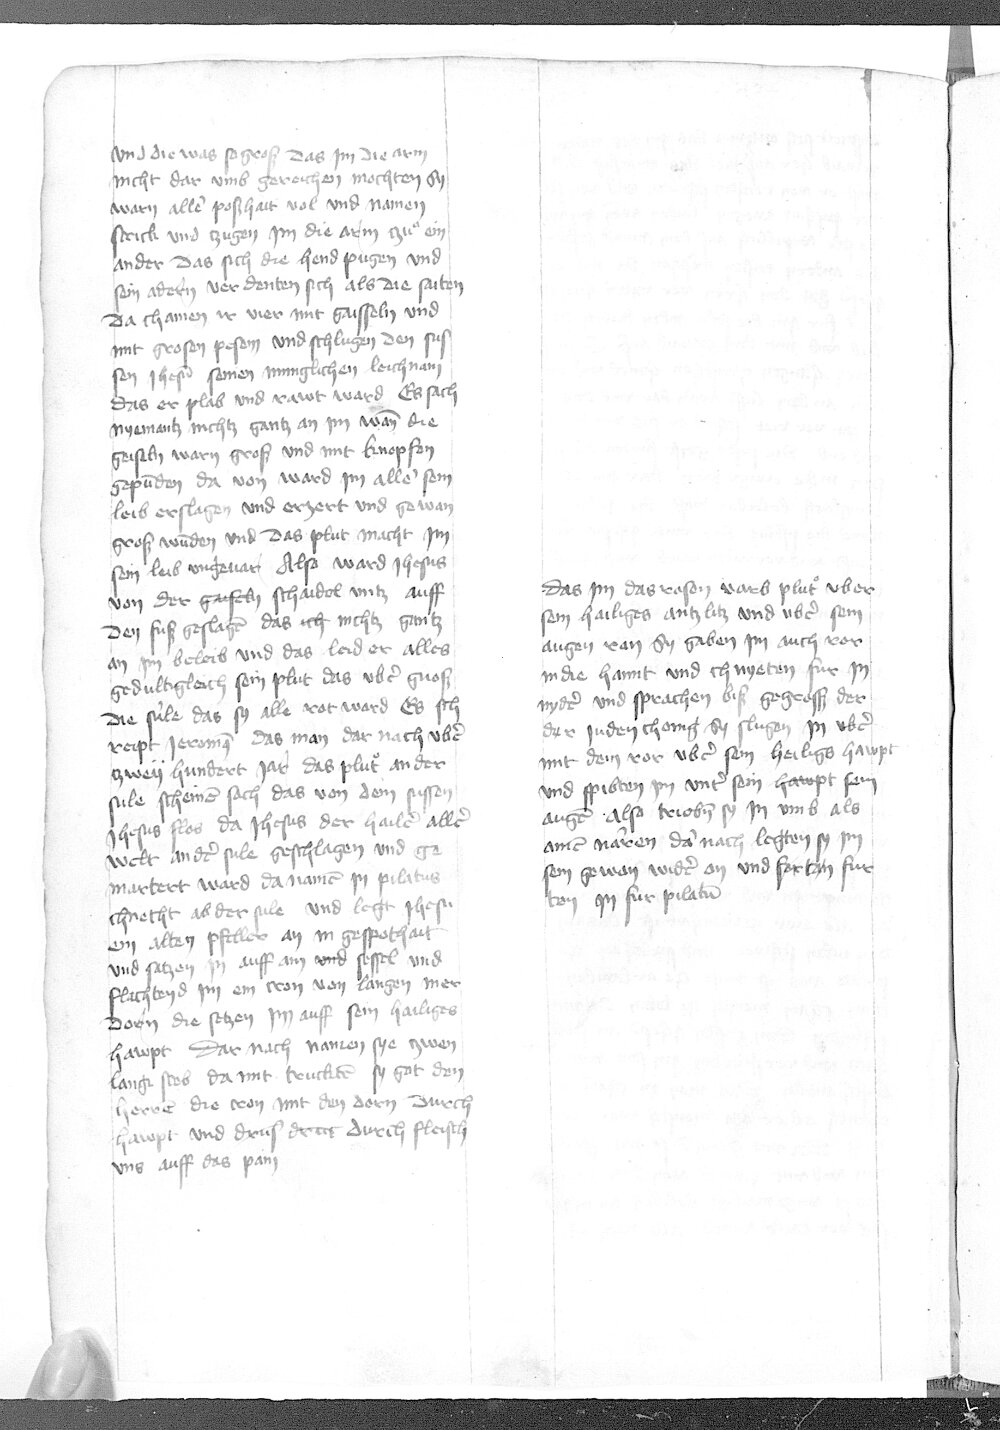 vnd die was so groß Das Im die arm
nicht dar vmb gereichen mochten Sy
warn aller poßhait vol vnd namen
strick vnd tzugen Im die arm tzu ein
ander Das sich die hend pugen vnd
sein adern verdenten sich als die saiten
Da chamen ir vier mit gaisseln vnd
mit grosen pesem vnd schlugen Den sus
sen Ihesu seinen minnglichen leichnam
das er plab vnd rawt ward Es sach
nyemantz nichtz gantz an im wan die
geiseln warn groß vnd mit knopfen
gepunden da von ward im aller sein
leib erslagen vnd erzert vnd gewan
groß wunden vnd Das plut macht Im
sein leib vngevar Also ward Ihesus
von der gaiseln schaidel vntz auff
Den fuß geslagen das ich nichtz gantz
an im beleib vnd das leid er alles
gedultigleich sein plut das vber gnoß
Die sule das sy alle rot ward Es sch
reipt Jeronimus das man dar nach vber
tzweii hundert Jar das plut an der
sule scheinen sach das von dem sussen
Ihesus flos da Ihesus der hailer aller
welt an der sule geschlagen vnd ge
martert ward da namen in pilatus
chnecht ab der sule vnd legt Ihesu
ein alten pfeller an in gespothait
vnd satzen in auff ain vnd sessel vnd
flachtend im ein cron von langen mer
Dorn die setzen im auff sein hailiges
hawpt Dar nach namen sye tzwen
lang steb da mit truckten sy got den
herren die cron mit den dorn Durch
hawpt vnd drus Durch fleisch
vns auff das pain
Das im das rosen varb plut vber
sein hailiges antzlitz vnd vber sein
augen ran Sy gaben im auch ror
in die hannt vnd chnyeten fur In
nyder vnd sprachen biß gegrosst der
der juden chonig Sy slugen In vber
mit dem ror vber sein heiligs hawpt
vnd spibten im vnter sein hawpt sein
augen Also triben sy In vmb als
amen narren dar nach legten sy im
sein gewon wider an vnd furten fur
ten In fur pilatum